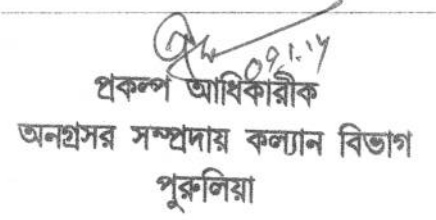 প্রকল্প আধিকারীক
অনগ্রসর সম্প্রদায় কল্যান বিভাগ
পুরুলিয়া